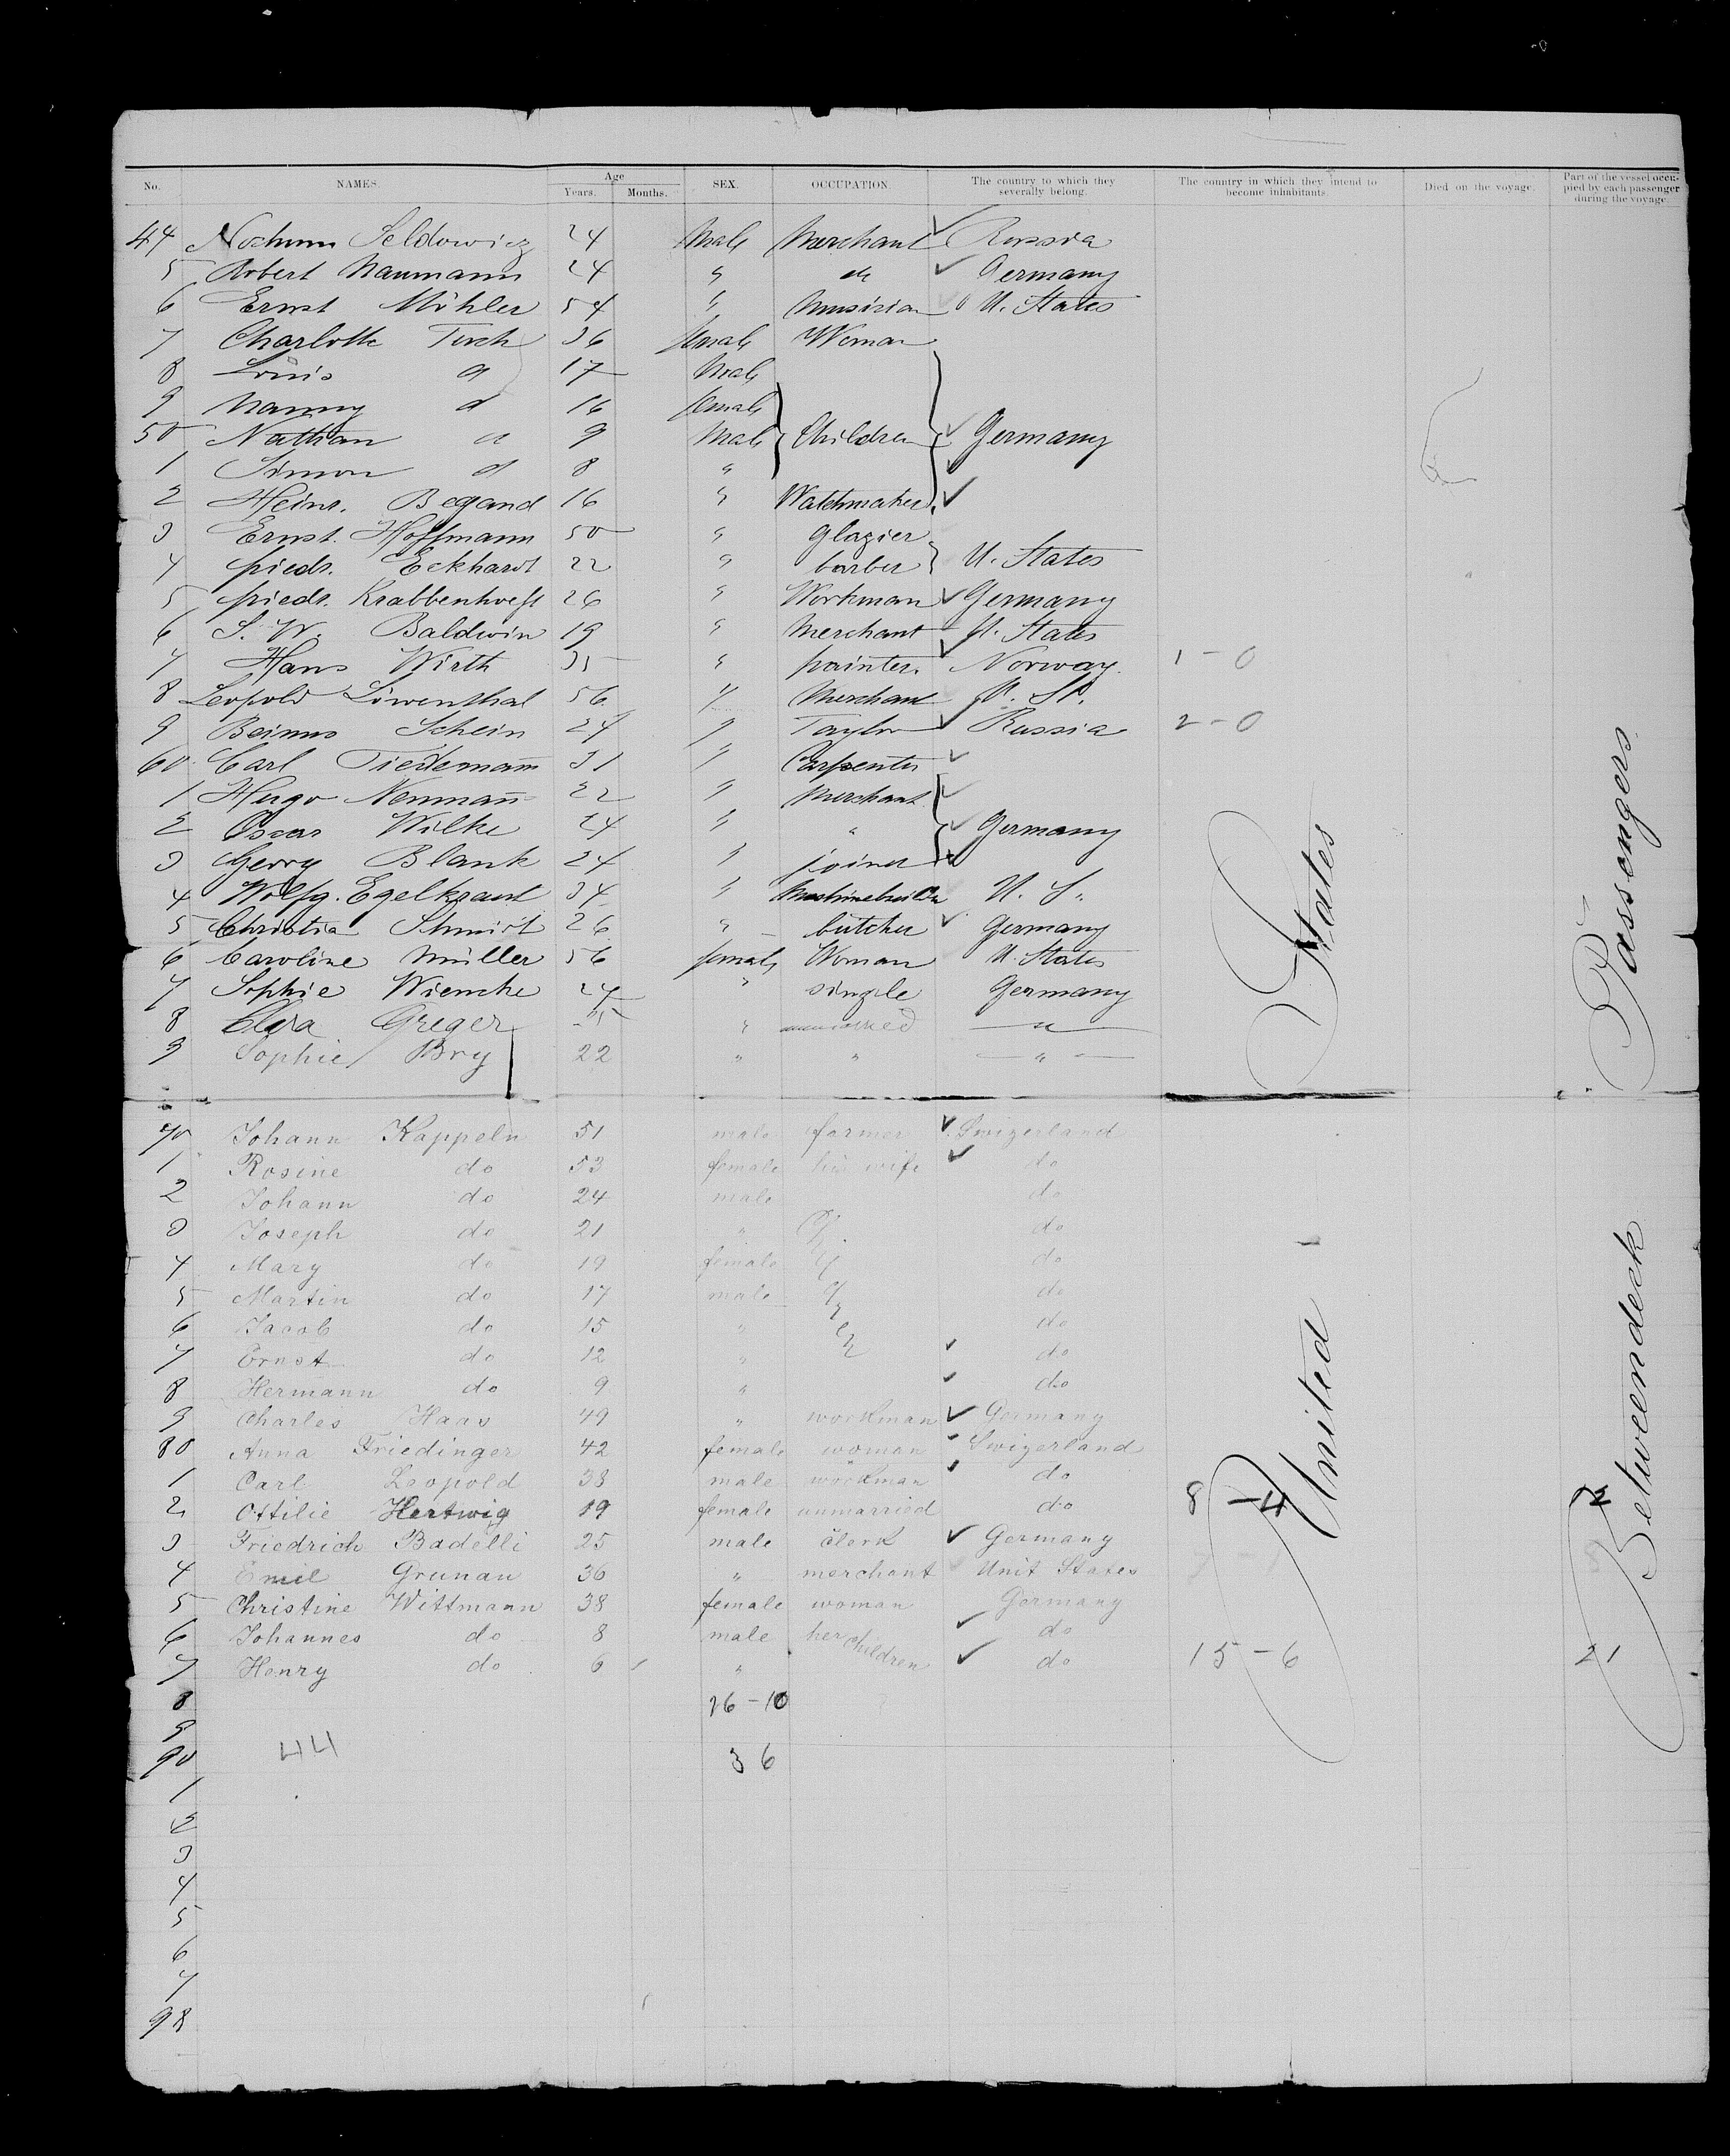 No. NAMES. Age Years. Months. SEX. OCCUPATION. The country to which they severally belong. The country in which they intend to become inhabitants. Died on the voyage. Part of the vessel occupied by each passenger during the voyage.
44 Nochum Seldowicz 24 Male Merchant ✓ Russia
5 Robert Naumann 24 " do ✓ Germany
6 Ernst Möhler 54 " Musician U. States
7 Charlotte Turch 36 female Woman
8 Louis d 17 Male
9 Nanny d 16 female
50 Nathan d 9 Male Children ✓ Germany
1 Simon d 8 " ✓
2 Heinr. Begand 16 " Watchmaker ✓
3 Ernst. Hoffmann 50 " glazier
4 friedr. Eckhardt 22 " barber U. States
5 friedr. Krabbenhoeft 26 " Workman ✓ Germany
6 S. W. Baldwin 19 " Merchant U. States
7 Hans Wirth 35 " painter ✓ Norway 1 - 0
8 Leopold Löwenthal 56 " Merchant U. St.
9 Beinus Schein 24 " Taylor ✓ Russia 2 - 0
60 Carl Tiedemann 31 " Carpenter ✓
1 Hugo Neumann 22 " Merchant ✓
2 Oscar Wilke 24 " " ✓ Germany
3 Gerry Blank 24 " joiner ✓
4 Wolfg. Egelkraut 34 " Mashinebuilder U. S.
5 Christia Schmidt 26 " butcher ✓ Germany
6 Caroline Müller 56 female Woman U. States
7 Sophie Wiencke 24 " single Germany
8 Clara Greger 25 " unmarried "
9 Sophie Bry 22 " " "
70 Johann Kappeln 51 male farmer ✓ Swizerland
1 Rosine do 53 female his wife ✓ do
2 Johann do 24 male do
3 Joseph do 21 " do
4 Mary do 19 female do
5 Martin do 17 male do
6 Jacob do 15 " do
7 Ernst do 12 " ✓ do
8 Hermann do 9 " ✓ do
9 Charles Haas 49 " workman ✓ Germany
80 Anna Friedinger 42 female woman Swizerland
1 Carl Leopold 38 male workman ✓ do
2 Ottilie Hertwig 19 female unmarried do 8 - 4
3 Friedrich Badelli 25 male clerk ✓ Germany
4 Emil Grunau 36 " merchant Unit States
5 Christine Wittmann 38 female woman Germany
6 Johannes do 8 male her children ✓ do
7 Henry do 6 " ✓ do 15 - 6 21
8 26 - 10
9
90 44 36
1
2
3
4
5
6
7
98
United States
Betweendeck Passengers